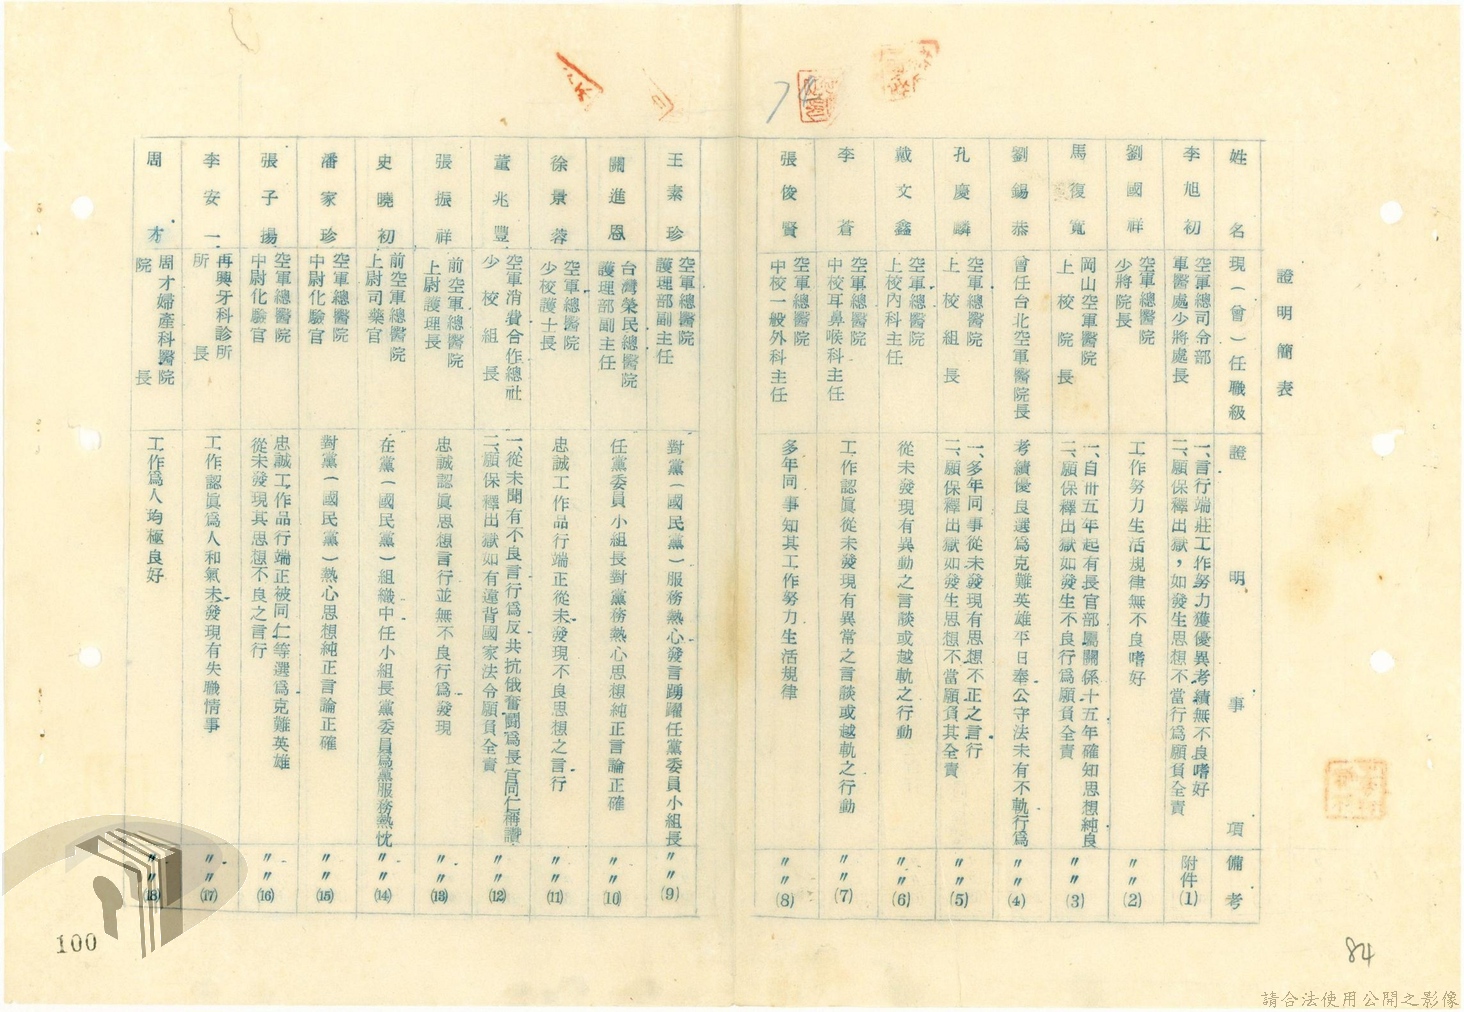 證明簡表
姓名
現(曾)任職級
證明事項
備考
李旭初
空軍總司令部
軍醫處少將處長
一、言行端莊工作努力獲優異考績無不良嗜好
二、願保釋出獄,如發生思想不當行為願負全責
附件(1)
劉國祥
空軍總醫院
少將院長
工作努力生活規律無不良嗜好
〃〃(2)
馬復寬
岡山空軍醫院
上校院長
一、自卅五年起有長官部屬關係十五年確知思想純良
二、願保釋出獄如發生不良行為願負全責
〃〃(3)
劉錫恭
曾任台北空軍醫院長
考績優良選為克難英雄平日奉公守法未有不軌行為
〃〃(4)
孔慶麟
空軍總醫院
上校組長
一、多年同事從未發現有思想不正之言行
二、願保釋出獄如發生思想不當願負其全責
〃〃(5)
戴文鑫
空軍總醫院
上校內科主任
從未發現有異動之言談或越軌之行動
〃〃(6)
李蒼
空軍總醫院
中校耳鼻喉科主任
工作認眞從未發現有異常之言談或越軌之行動
〃〃(7)
張俊賢
空軍總醫院
中校一般外科主任
多年同事知其工作努力生活規律
〃〃(8)
王素珍
空軍總醫院
護理部副主任
對黨(國民黨)服務熱心發言踴躍任黨委員小組長
〃〃(9)
關進恩
台灣榮民總醫院
護理部副主任
任黨委員小組長對黨務熱心思想純正言論正確
〃〃(10)
徐景蓉
空軍總醫院
少校護士長
忠誠工作品行端正從未發現不良思想之言行
〃〃(11)
董兆豐
空軍消費合作總社
少校組長
一、從未聞有不良言行為反共抗俄奮鬪為長官同仁稱讚
二、願保釋出獄如有違背國家法令願負全責
〃〃(12)
張振祥
前空軍總醫院
上尉護理長
忠誠認眞思想言行並無不良行為發現
〃〃(13)
史曉初
前空軍總醫院
上尉司藥官
在黨(國民黨)組織中任小組長黨委員為黨服務熱忱
〃〃(14)
潘家珍
空軍總醫院
中尉化驗官
對黨(國民黨)熱心思想純正言論正確
〃〃(15)
張子揚
空軍總醫院
中尉化驗官
忠誠工作品行端正被同仁等選為克難英雄
從未發現其思想不良之言行
〃〃(16)
李安一
再興牙科診所
所長
工作認眞為人和氣未發現有失職情事
〃〃(17)
周才
周才婦產科醫院
院長
工作為人均極良好
〃〃(18)
100
84
請合法使用公開之影像